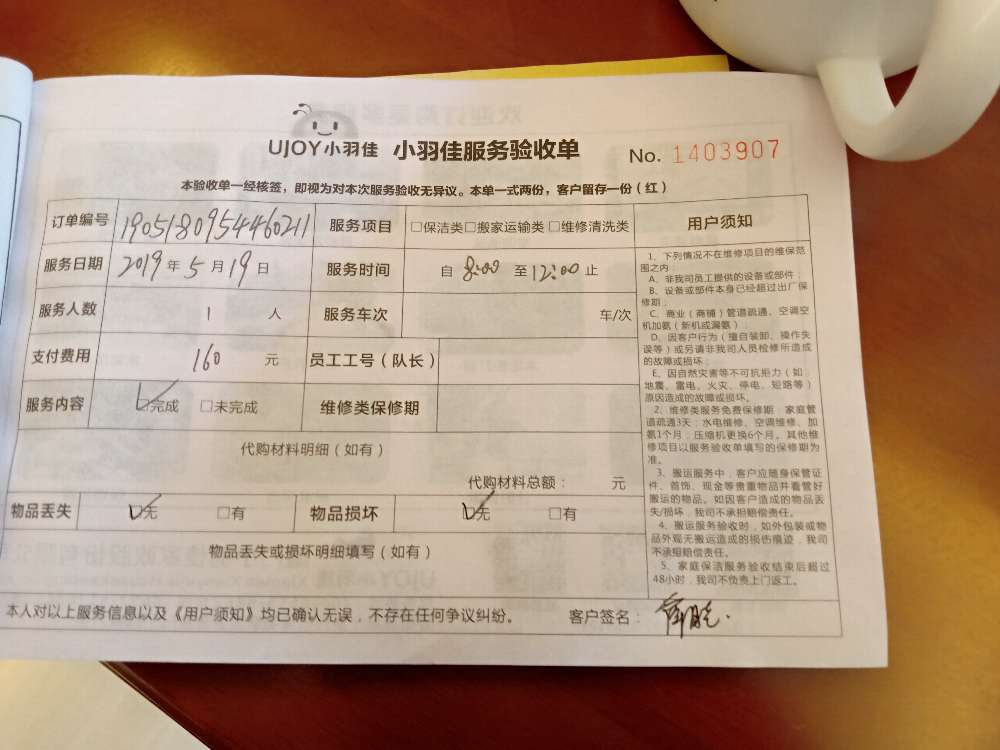 UJOY小羽佳 小羽佳服务验收单 No. 1403907
本验收单一经核签，即视为对本次服务验收无异议。本单一式两份，客户留存一份（红）
订单编号 1905180954460211 服务项目 □保洁类□搬家运输类□维修清洗类
服务日期 2019年5月19日 服务时间 自 8:00 至12:00止
服务人数 1 人 服务车次 车/次
支付费用 160 元 员工工号（队长）
服务内容 ☑完成 □未完成 维修类保修期
代购材料明细（如有）
代购材料总额： 元
物品丢失 ☑无 □有 物品损坏 ☑无 □有
物品丢失或损坏明细填写（如有）
用户须知
1、下列情况不在维修项目的维保范
围之内：
A、非我司员工提供的设备或部件；
B、设备或部件本身已经超过出厂保
修期；
C、商业（商铺）管道疏通、空调空
机加氨（新机或漏氨）；
D、因客户行为（擅自装卸、操作失
误等）或另请非我司人员检修所造成
的故障或损坏；
E、因自然灾害等不可抗拒力（如：
地震、雷电、火灾、停电、短路等）
原因造成的故障或损坏。
2、维修类服务免费保修期：家庭管
道疏通3天；水电维修、空调维修、加
氨1个月；压缩机更换6个月。其他维
修项目以服务验收单填写的保修期为
准。
3、搬运服务中，客户应随身保管证
件、首饰、现金等贵重物品并看管好
搬运的物品。如因客户造成的物品丢
失/损坏，我司不承担赔偿责任。
4、搬运服务验收时，如外包装或物
品外观无搬运造成的损伤痕迹，我司
不承担赔偿责任。
5、家庭保洁服务验收结束后超过
48小时，我司不负责上门返工。
本人对以上服务信息以及《用户须知》均已确认无误，不存在任何争议纠纷。 客户签名：